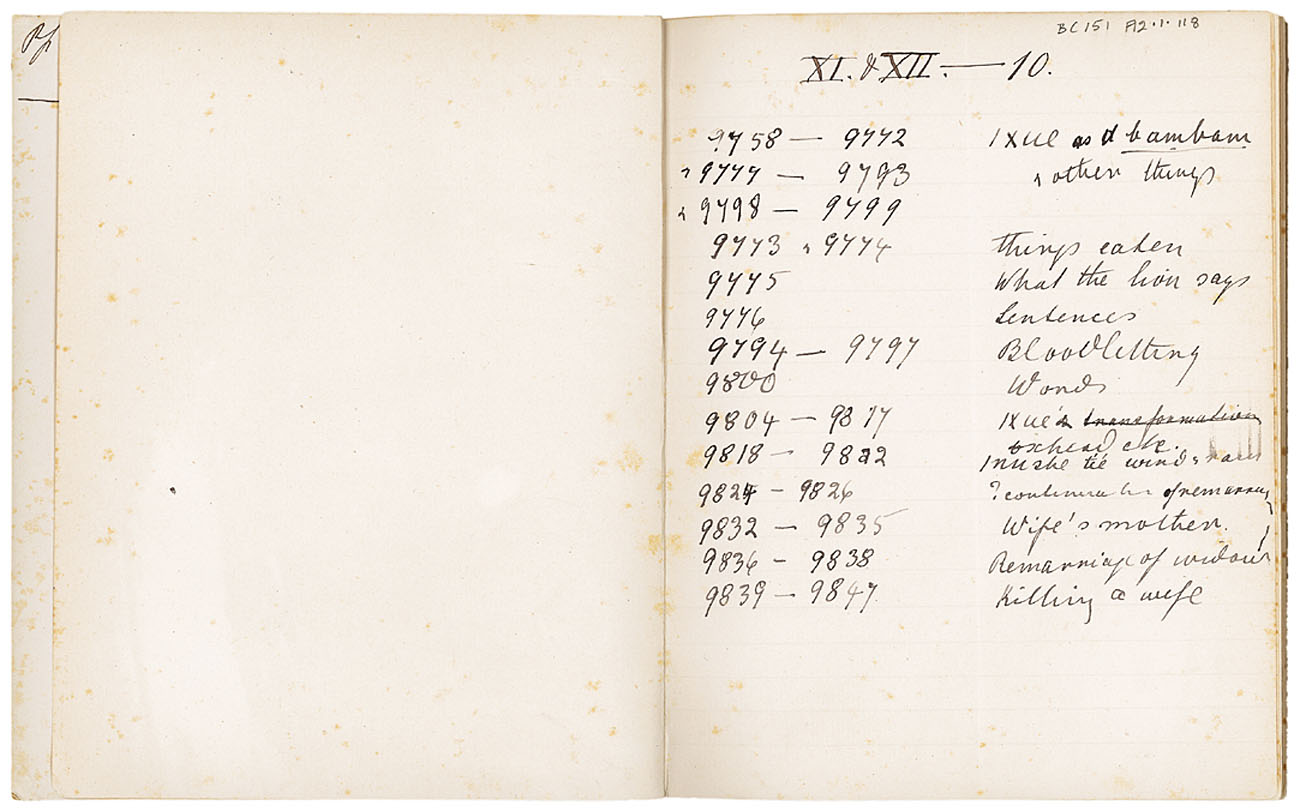 BC 151 A2.1.118
XI. & XII. — 10.
9758 — 9772 |xue as a bambam
& 9777 — 9793 & other things
& 9798 — 9799
9773 & 9774 things eaten
9775 What the lion says
9776 Sentences
9794 — 9797 Bloodletting
9800 Words
9804 — 9817 |xue's transformation
oxhead etc.
9818 — 9822 wind & rain
9824 — 9826 ? of remarriage
9832 — 9835 Wife's mother.
9836 — 9838 Remarriage of widow
9839 — 9847 Killing a wife